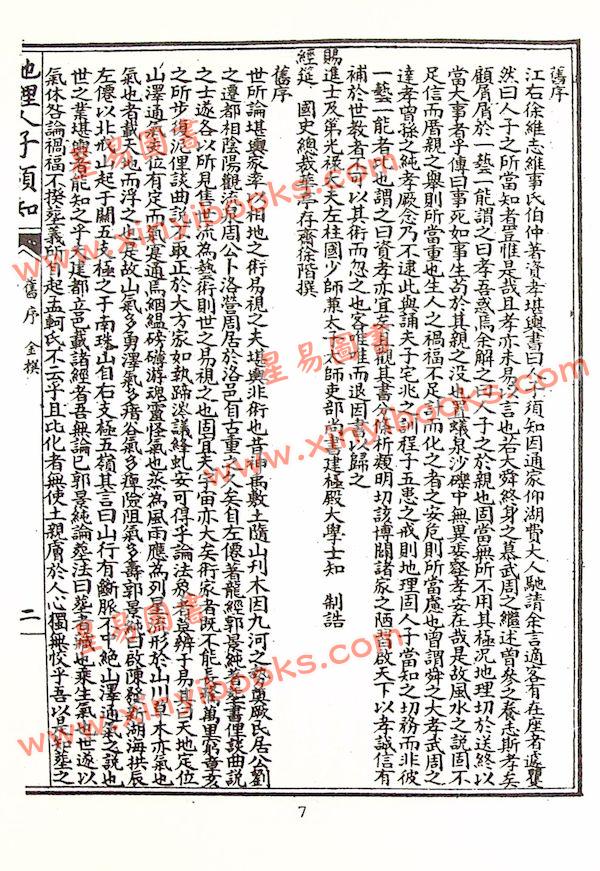 舊序
江右徐維志維事氏伯仲著資孝堪輿書曰人子須知因通家仰湖費大人馳請余言適客有在座者遽矍
然曰人子之所當知者豈惟是哉且孝亦未易言也若大舜終身之慕武周之繼述曾參之養志斯孝矣
顧屑屑於一藝一能謂之曰孝吾惑焉余解之曰人子之於親也固當無所不用其極況地理切於送終以
當大事者乎傳曰事死如事生苟於其親之沒也置蟻泉沙礫中無異委壑孝安在哉是故風水之說固不
足信而厝親之舉則所當重也生人之禍福不足言而化之者之安危則所當慮也曾謂舜之大孝武周之
達孝曾孫之純孝嚴念乃不逮此與誦夫子宅兆之訓程子五患之戒則地理固人子當知之切務而非彼
一藝一能者比也謂之曰資孝亦宜矣且觀其書分條析類明切該博闢諸家之陋習啟天下以孝誠信有
補於世教者不可以其術而忽之也客唯唯而退因書以歸之
賜進士及第光祿大夫左柱國少師兼太子太師吏部尚書建極殿大學士知 制誥
經筵 國史總裁華亭存齋徐階撰
舊序
世所論堪輿家率以相地之術易視之夫堪輿非術也昔神禹敷土隨山刊木因九河之
之遷都相陰陽觀流泉周公卜洛營周居於洛邑自古重之久矣自左僊著龍經郭景純著葬書俚談曲說
之士遂各以所見售世流為藝術則世之易視之也固宜夫宇宙亦大矣術家者既不能
之所步復泥俚談曲說不取正於大方家如執蹄涔議絳虬安可得乎論法象者莫辨乎易其曰天地定位
山澤通氣定位有定而氣寔通焉絪縕磅礴游魂靈怪氣也蒸為風雨應為列星流形於山川草木亦氣也
氣也者載天地而浮之也是故山氣多勇澤氣多瘖谷氣多痺險阻氣多壽郭景純曰
左僊以北戍山起于關五支極之于南珠山自右支極五嶺其言曰山行有斷脈不中絕山澤通氣之說也
世之業堪輿者能知之乎夫建都立邑載諸經者吾無論已郭景純論葬法曰葬者藏也乘生氣也世遂以
氣休咎論禍福不揆葬義所自起孟軻氏不云乎且比化者無使土親膚於人心獨無恔乎吾以是知葬之
地理人子須知
舊序 金撰
二
7
星易圖書
www.xinyibooks.com